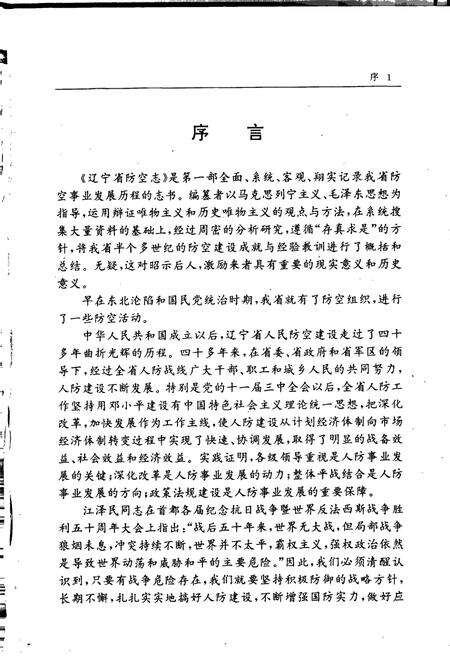 序 1
序 言
《辽宁省防空志》是第一部全面、系统、客观、翔实记录我省防
空事业发展历程的志书。编纂者以马克思列宁主义、毛泽东思想为
指导，运用辩证唯物主义和历史唯物主义的观点与方法，在系统搜
集大量资料的基础上，经过周密的分析研究，遵循“存真求是”的方
针，将我省半个多世纪的防空建设成就与经验教训进行了概括和
总结。无疑，这对昭示后人，激励来者具有重要的现实意义和历史
意义。
早在东北沦陷和国民党统治时期，我省就有了防空组织，进行
了一些防空活动。
中华人民共和国成立以后，辽宁省人民防空建设走过了四十
多年曲折光辉的历程。四十多年来，在省委、省政府和省军区的领
导下，经过全省人防战线广大干部、职工和城乡人民的共同努力，
人防建设不断发展。特别是党的十一届三中全会以后，全省人防工
作坚持用邓小平建设有中国特色社会主义理论统一思想，把深化
改革，加快发展作为工作主线，使人防建设从计划经济体制向市场
经济体制转变过程中实现了快速、协调发展，取得了明显的战备效
益、社会效益和经济效益。实践证明，各级领导重视是人防事业发
展的关键；深化改革是人防事业发展的动力；整体平战结合是人防
事业发展的方向；政策法规建设是人防事业发展的重要保障。
江泽民同志在首都各届纪念抗日战争暨世界反法西斯战争胜
利五十周年大会上指出：“战后五十年来，世界无大战，但局部战争
狼烟未息，冲突持续不断，世界并不太平，霸权主义，强权政治依然
是导致世界动荡和威胁和平的主要危险。”因此，我们必须清醒认
识到，只要有战争危险存在，我们就要坚持积极防御的战略方针，
长期不懈，扎扎实实地搞好人防建设，不断增强国防实力，做好应